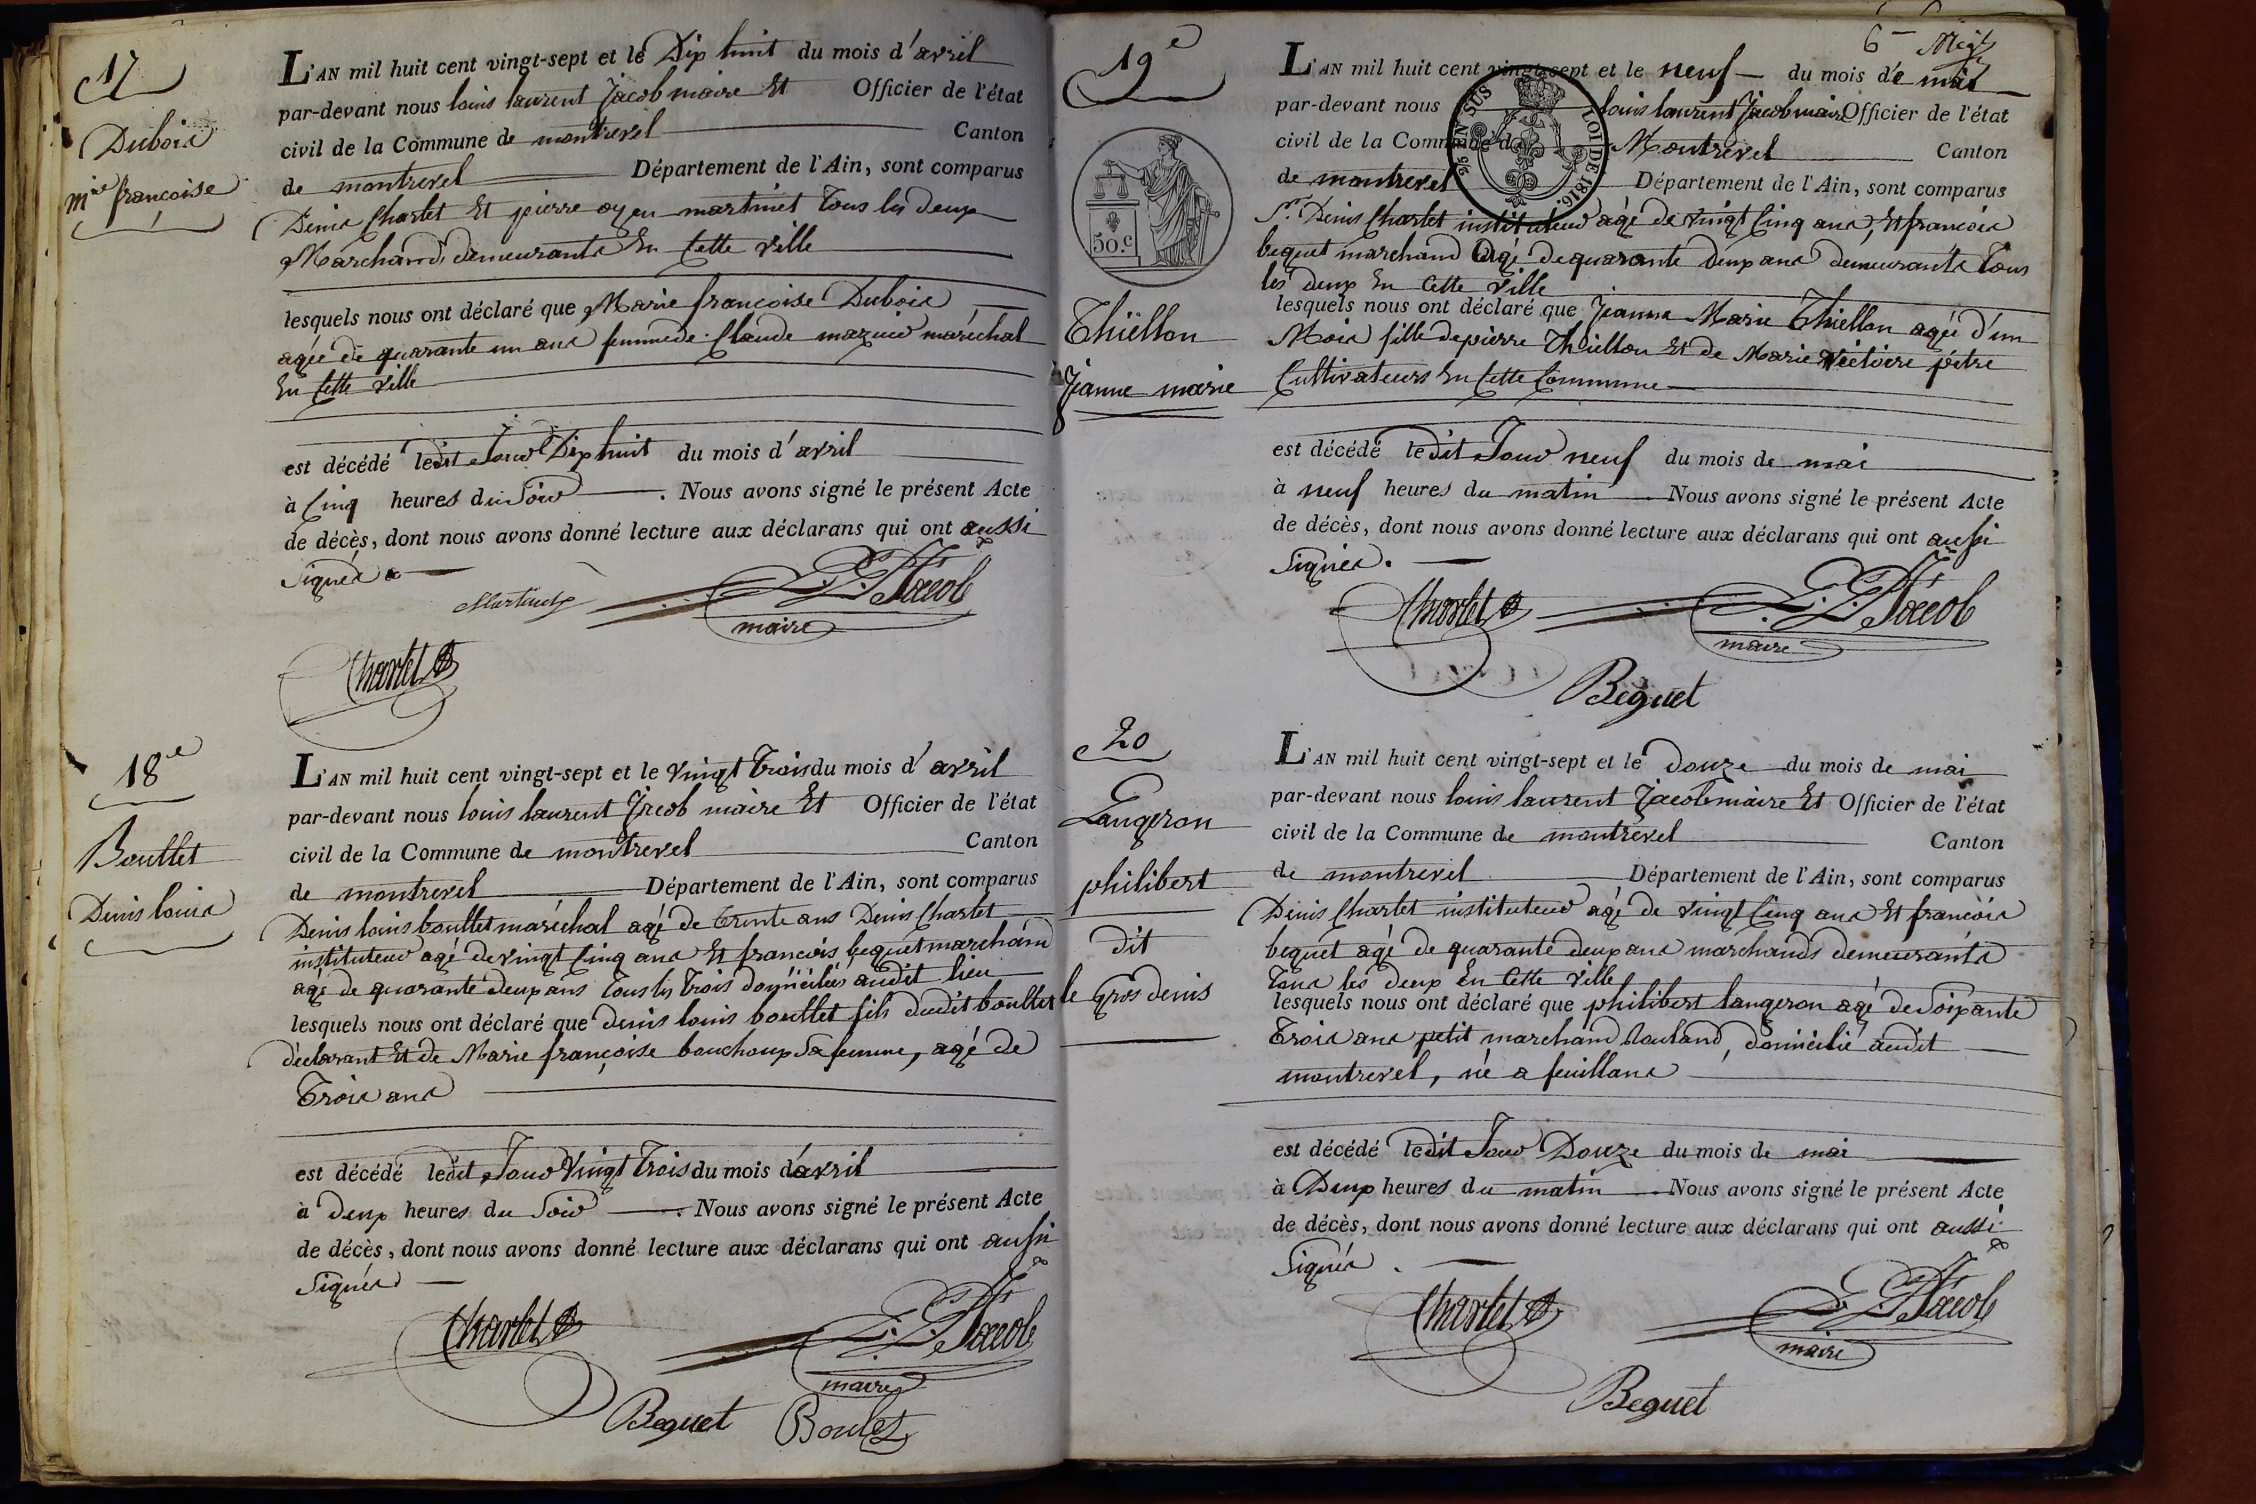 17
Dubois
m.ie françoise
L'AN mil huit cent vingt-sept et le Dix huit du mois d'avril
par-devant nous louis laurent Jacob maire Et Officier de l'état
civil de la Commune de montrevel Canton
de montrevel Département de l'Ain, sont comparus
Denis Charlet Et pierre oyen martinet Tous les deux
Marchands demeurants En Cette ville
lesquels nous ont déclaré que Marie françoise Dubois
agée de quarante un ans femme de Claude mazuir maréchal
En Cette ville
est décédé ledit Jour Dix huit du mois d'avril
à Cinq heures du Soir. Nous avons signé le présent Acte
de décès, dont nous avons donné lecture aux déclarans qui ont aussi
Signés
Martinet
L. L. Jacob
maire
Charlet
18e
Boullet
Denis louis
L'AN mil huit cent vingt-sept et le vingt Trois du mois d'avril
par-devant nous louis laurent Jacob maire Et Officier de l'état
civil de la Commune de montrevel Canton
de montrevel Département de l'Ain, sont comparus
Denis louis boullet maréchal agé de Trente ans Denis Charlet
instituteur agé de vingt Cinq ans Et francois bequet marchand
agé de quarante deux ans Tous les Trois domiciliés audit lieu
lesquels nous ont déclaré que denis louis boullet fils dudit boullet
déclarant Et de Marie françoise bouchoux Sa femme, agé de
Trois ans
est décédé ledit Jour vingt Trois du mois d'avril
à deux heures du Soir. Nous avons signé le présent Acte
de décès, dont nous avons donné lecture aux déclarans qui ont aussi
Signés
Charlet
L. L. Jacob
maire
Bequet Boulet
6
19e
50.c
Thiëllon
Jeanne marie
95 EN SUS LOI DE 1816.
L'AN mil huit cent vingt-sept et le neuf du mois de mai
par-devant nous louis laurent Jacob maire Officier de l'état
civil de la Commune de Montrevel Canton
de montrevel Département de l'Ain, sont comparus
Sr. Denis Charlet instituteur agé de vingt Cinq ans, Et francois
bequet marchand agé de quarante deux ans demeurants Tous
les deux En Cette ville
lesquels nous ont déclaré que Jeanne Marie Thiellon agée d'un
Mois fille de pierre Thiellon Et de Marie victoire pitre
Cultivateurs En Cette Commune
est décédé ledit Jour neuf du mois de mai
à neuf heures du matin Nous avons signé le présent Acte
de décès, dont nous avons donné lecture aux déclarans qui ont aussi
Signés.
Charlet
L. L. Jacob
maire
Bequet
20
Langeron
philibert
dit
le Gros denis
L'AN mil huit cent vingt-sept et le douze du mois de mai
par-devant nous louis laurent Jacob maire Et Officier de l'état
civil de la Commune de montrevel Canton
de montrevel Département de l'Ain, sont comparus
Denis Charlet instituteur agé de vingt Cinq ans Et francois
bequet agé de quarante deux ans marchands demeurants
Tous les deux En Cette ville
lesquels nous ont déclaré que philibert langeron agé de Soixante
Trois ans petit marchand Rouland, domicilié audit
montrevel, né a feuillans
est décédé ledit Jour Douze du mois de mai
à Deux heures du matin Nous avons signé le présent Acte
de décès, dont nous avons donné lecture aux déclarans qui ont aussi
Signés.
Charlet
L. L. Jacob
maire
Bequet